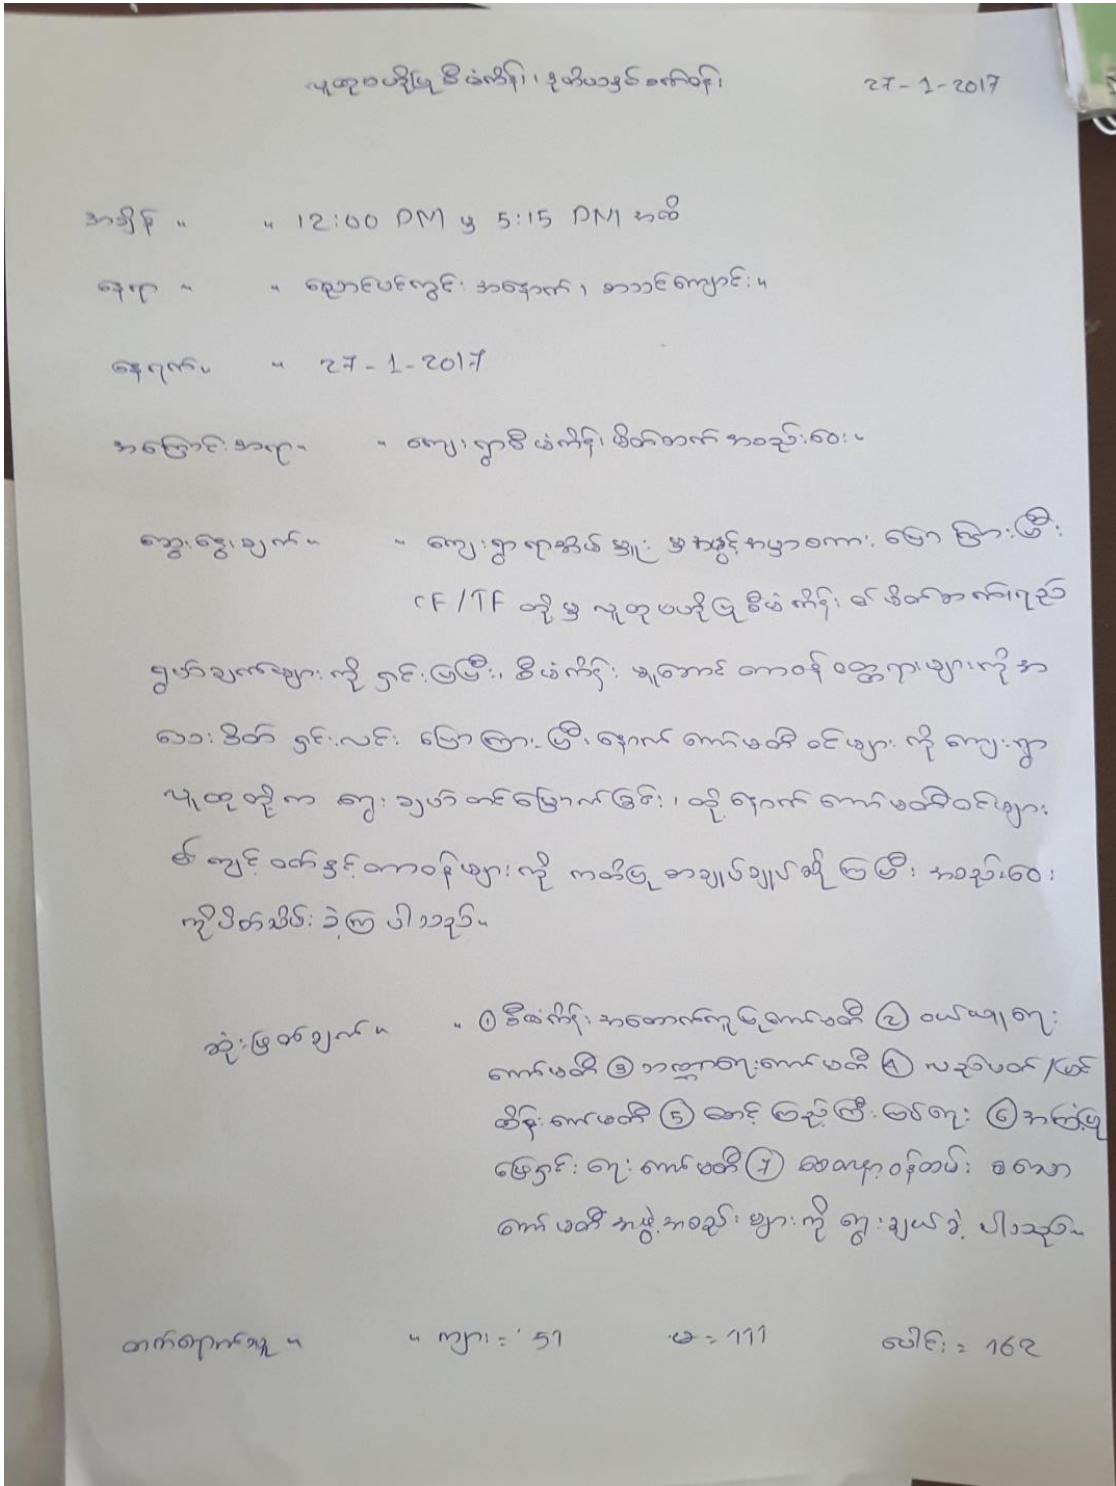 လူထုဗဟိုပြု စီမံကိန်း၊ ဒုတိယနှစ် စက်ဝန်း 27-1-2017
အချိန် ။ ။ 12:00 PM မှ 5:15 PM အထိ
နေရာ ။ ။ ညောင်ပင်ကွင်း အနောက်၊ စာသင်ကျောင်း။
နေ့ရက်။ ။ 27-1-2017
အကြောင်းအရာ။ ။ ကျေးရွာစီမံကိန်း မိတ်ဆက် အစည်းအဝေး။
ဆွေးနွေးချက်။ ။ ကျေးရွာရာအိမ်မှူး မှ အဖွင့်အမှာစကား ပြောကြားပြီး
CF/TF တို့မှ လူထုဗဟိုပြုစီမံကိန်း၏ မိတ်ဆက်၊ ရည်
ရွယ်ချက်များကို ရှင်းပြပြီး၊ စီမံကိန်း မူဘောင် တာဝန် ဝတ္တရားများကို အ
သေးစိတ် ရှင်းလင်း ပြောကြားပြီး နောက် ကော်မတီ ဝင်များ ကို ကျေးရွာ
လူထုတို့က ရွေးချယ် တင်မြှောက်ခြင်း၊ ထို့နောက် ကော်မတီဝင်များ
၏ ကျင့်ဝတ်နှင့်တာဝန်များကို ကတိပြု စာချုပ်ချုပ်ဆိုကြပြီး အစည်းအဝေး
ကိုပိတ်သိမ်းခဲ့ကြပါသည်။
ဆုံးဖြတ်ချက်။ ။ ① စီမံကိန်း အထောက်ကူပြုကော်မတီ ② ဝယ်ယူရေး
ကော်မတီ ③ ဘဏ္ဍာရေးကော်မတီ ④ လည်ပတ်/ပြင်
ထိန်း ကော်မတီ ⑤ စောင့်ကြည့်ကြီးကြပ်ရေး ⑥ အကြံပြု
ဖြေရှင်းရေး ကော်မတီ ⑦ စေတနာ့ဝန်ထမ်း စသော
ကော်မတီအဖွဲ့အစည်းများကို ရွေးချယ်ခဲ့ပါသည်။
တက်ရောက်သူ ။ ။ ကျား = 51 မ = 111 ပေါင်း = 162